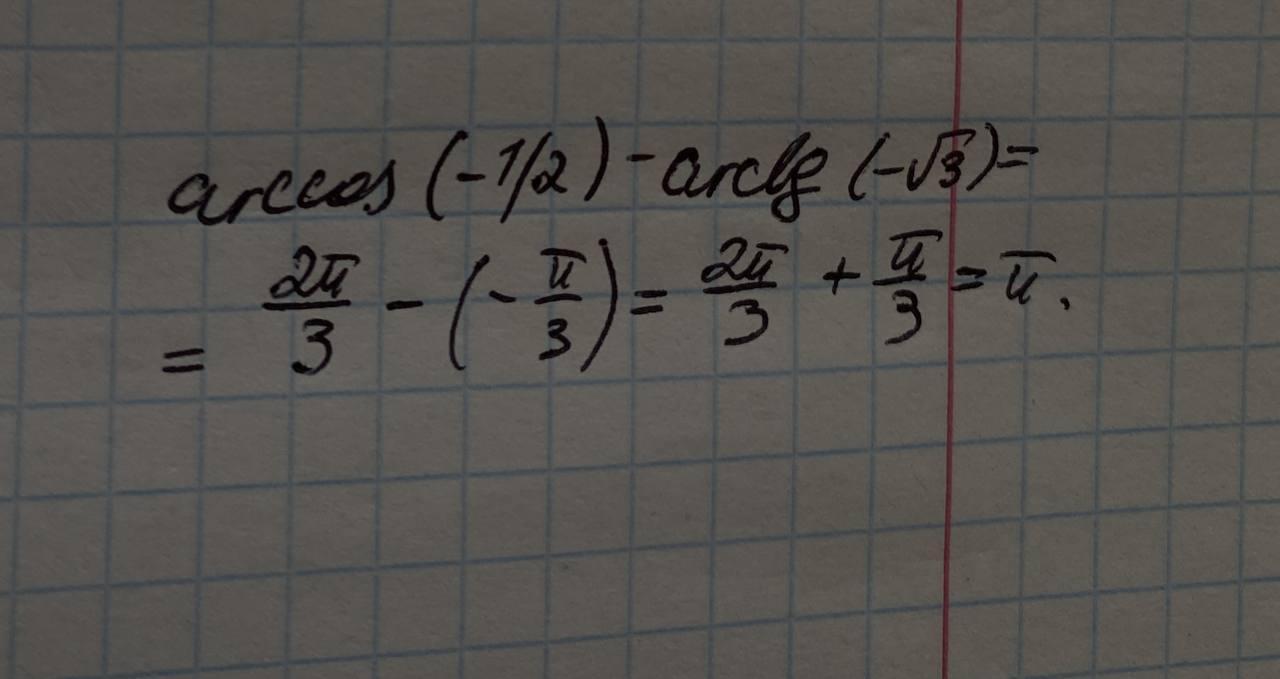 arccos (-1/2) - arctg (-√3) =
= 2π/3 - (- π/3) = 2π/3 + π/3 = π.